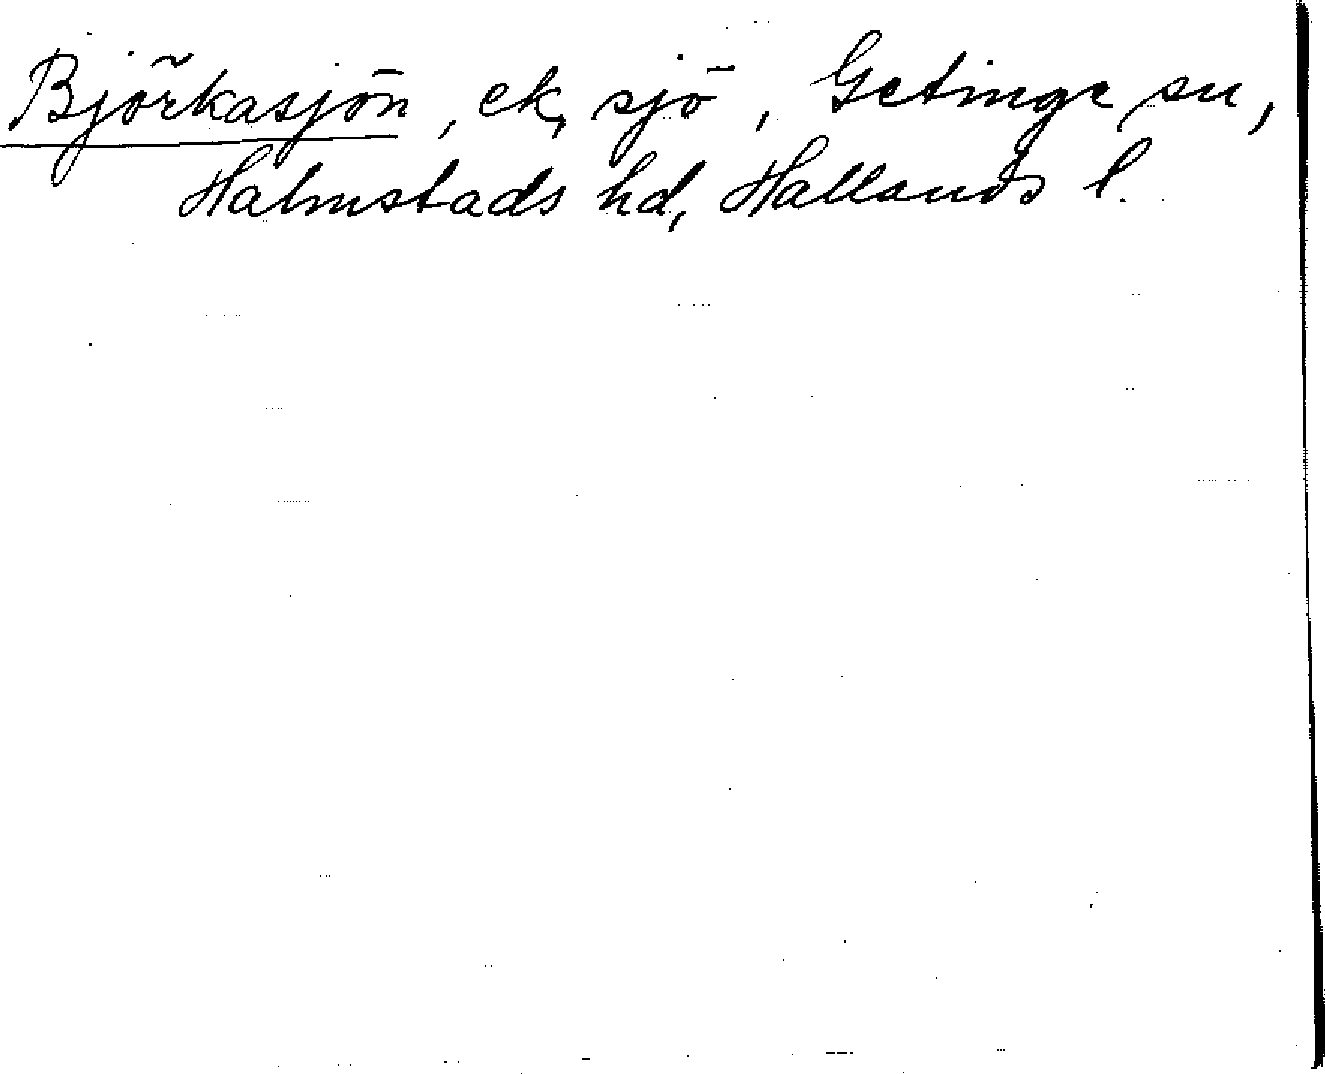 Björkasjön, ek, sjö, Getinge sn,
Halmstads hd, Hallands l.